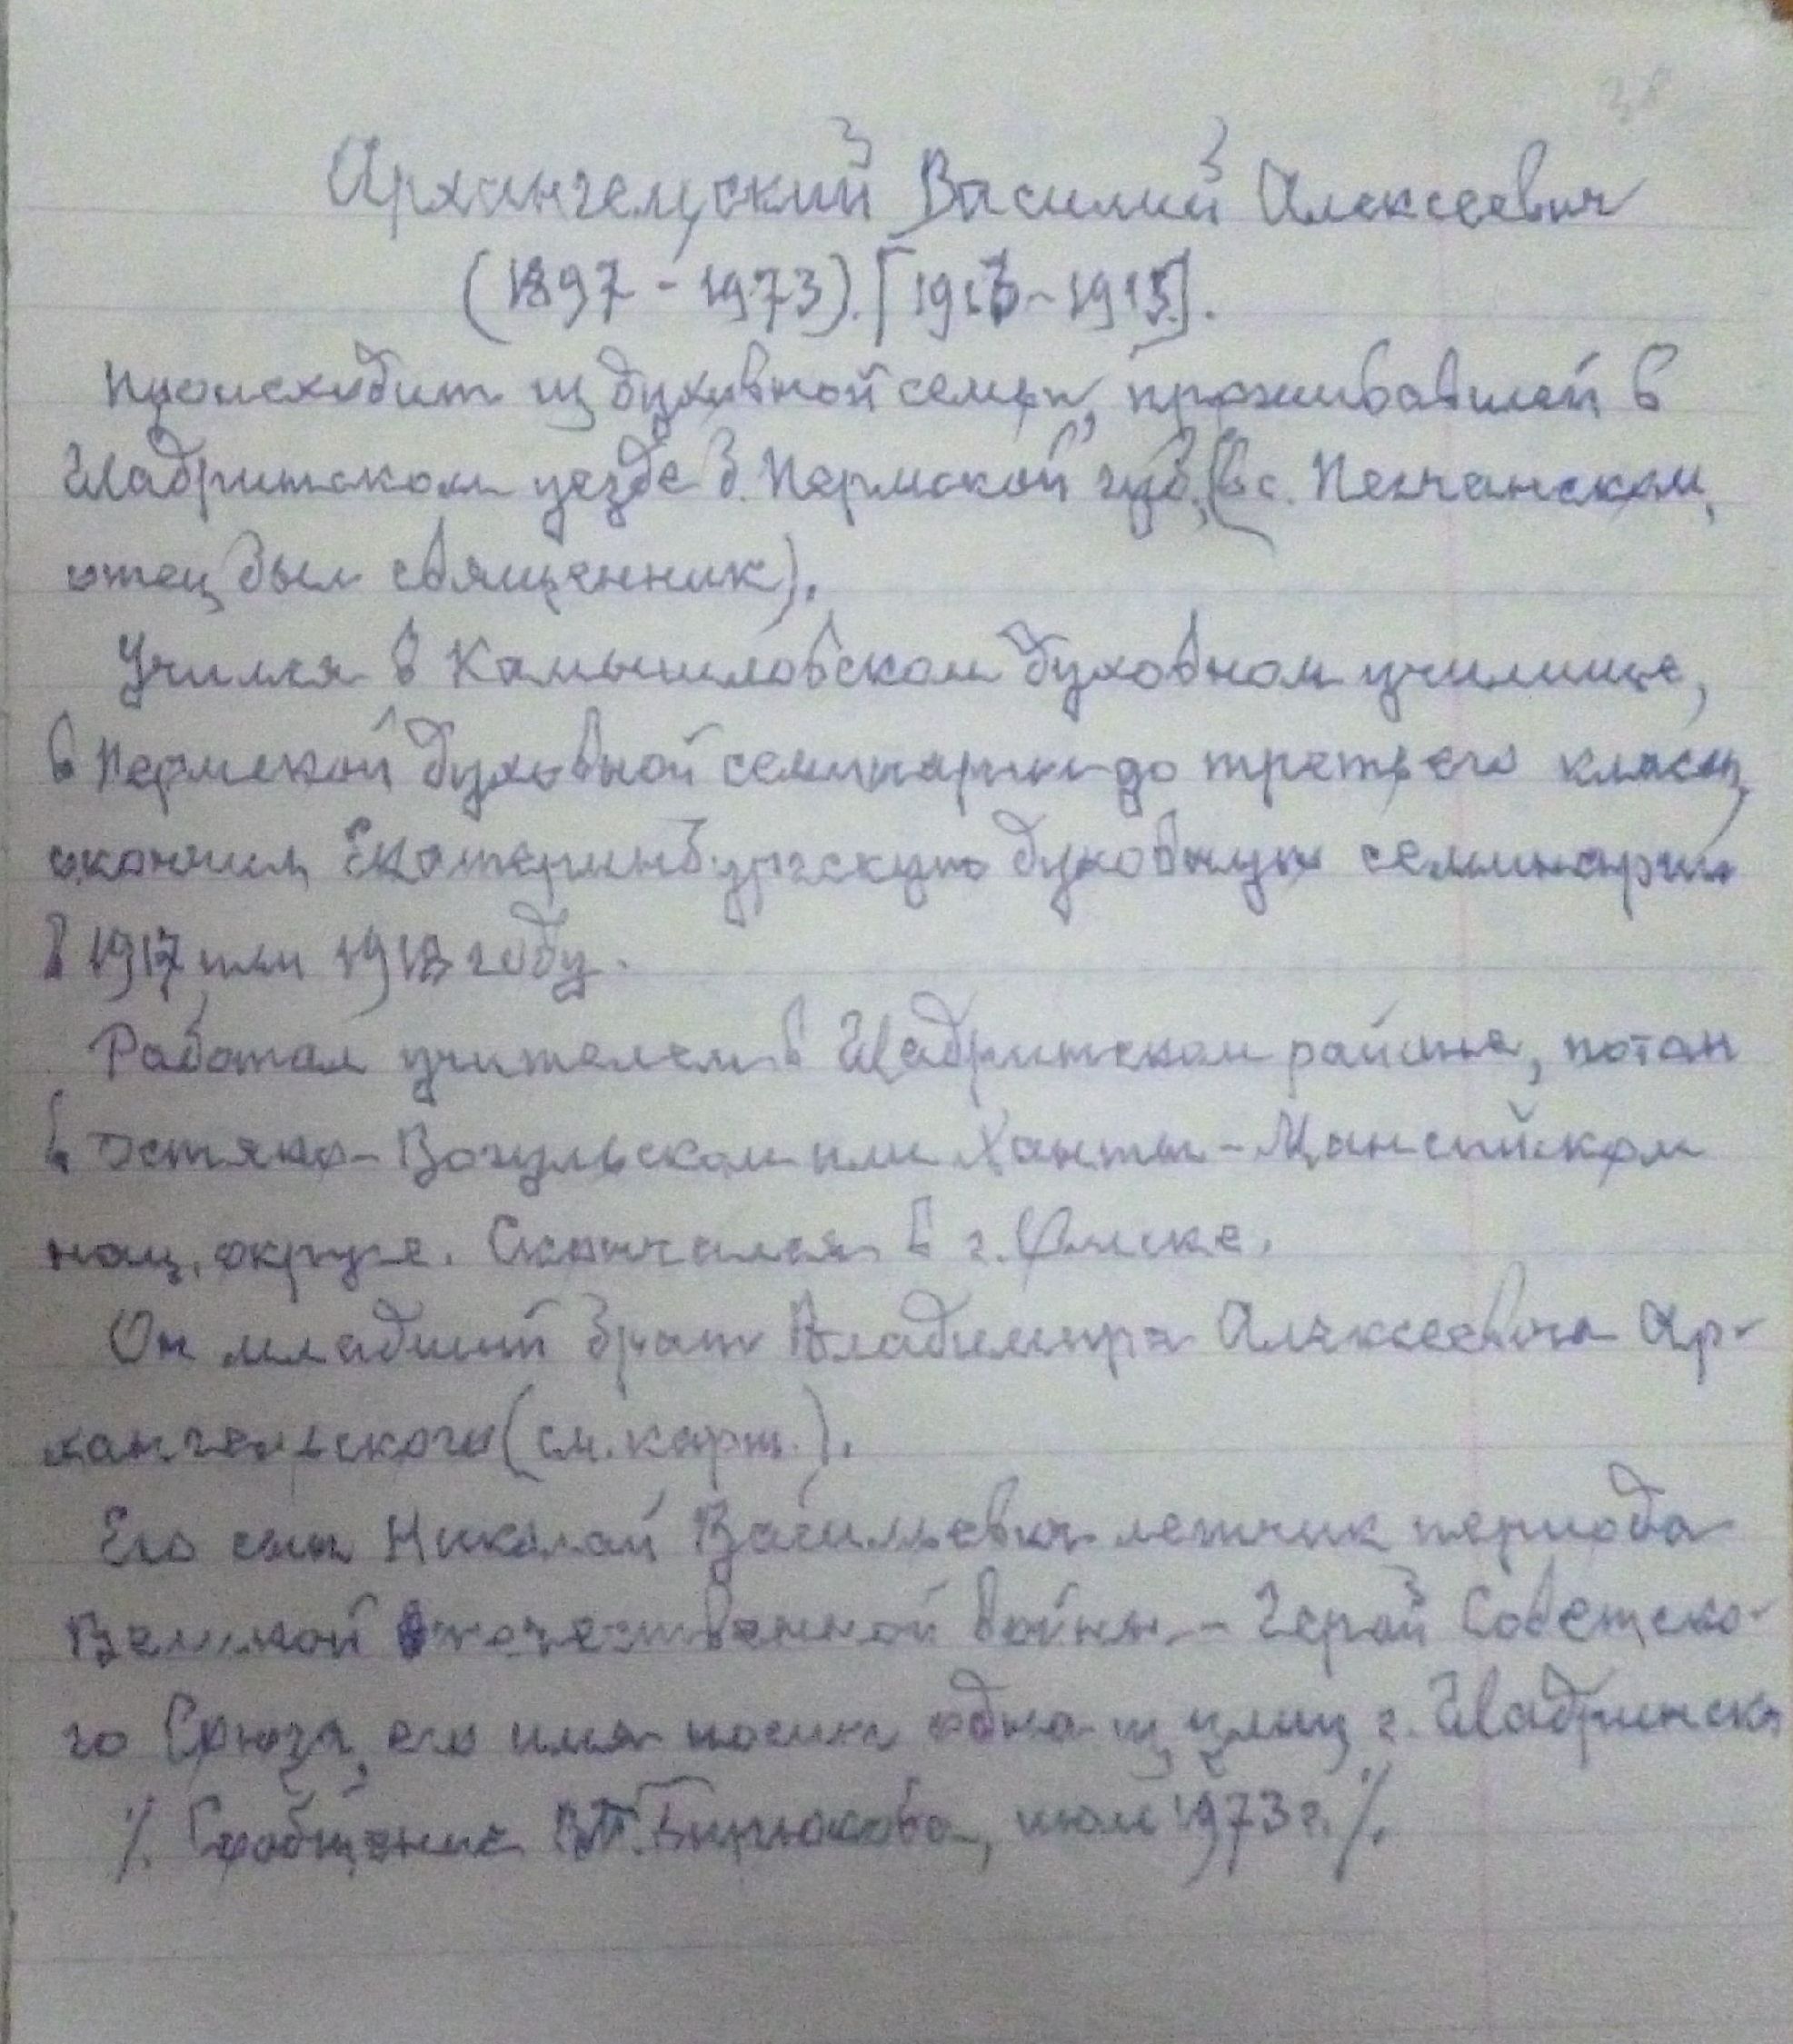 38
Архангельский Василий Алексеевич
(1897-1973). [1913-1915].
Происходит из духовной семьи, проживавшей в
Шадринском уезде б. Пермской губ. (в с. Песчанском,
отец был священник).
Учился в Камышловском духовном училище,
в Пермской духовной семинарии до третьего класса,
окончил Екатеринбургскую духовную семинарию
в 1917 или 1918 году.
Работал учителем в Шадринском районе, потом
в Остяко-Вогульском или Ханты-Мансийском
нац. округе. Скончался в г. Омске.
Он младший брат Владимира Алексеевича Ар-
хангельского (см. карт.).
Его сын Николай Васильевич летчик периода
Великой Отечественной войны - Герой Советско-
го Союза, его имя носит одна из улиц г. Шадринска
%. Сообщение В.П. Бирюкова, июль 1973 г. %.